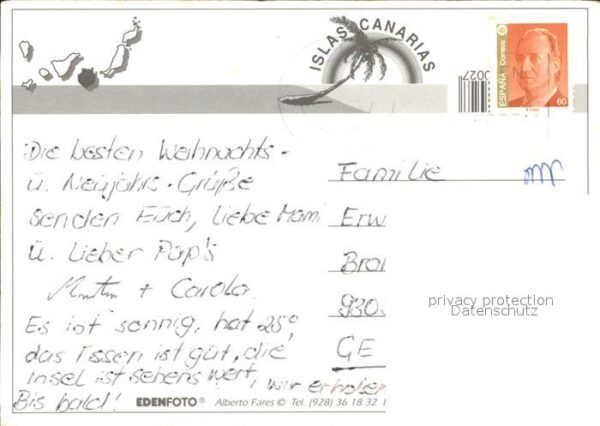 ISLAS CANARIAS
0027
ESPAÑA
Correos
60
Die besten Weihnachts-
u. Neujahrs-Grüße
senden Euch, liebe Mami
u. lieber Pap's
+ Carola.
Es ist sonnig, hat 25°,
das Essen ist gut, die
Insel ist sehenswert, wir erholen
Bis bald!
Familie
Erw
Bro
930
GE
privacy protection
Datenschutz
EDENFOTO® Alberto Fares © Tel. (928) 36 18 32